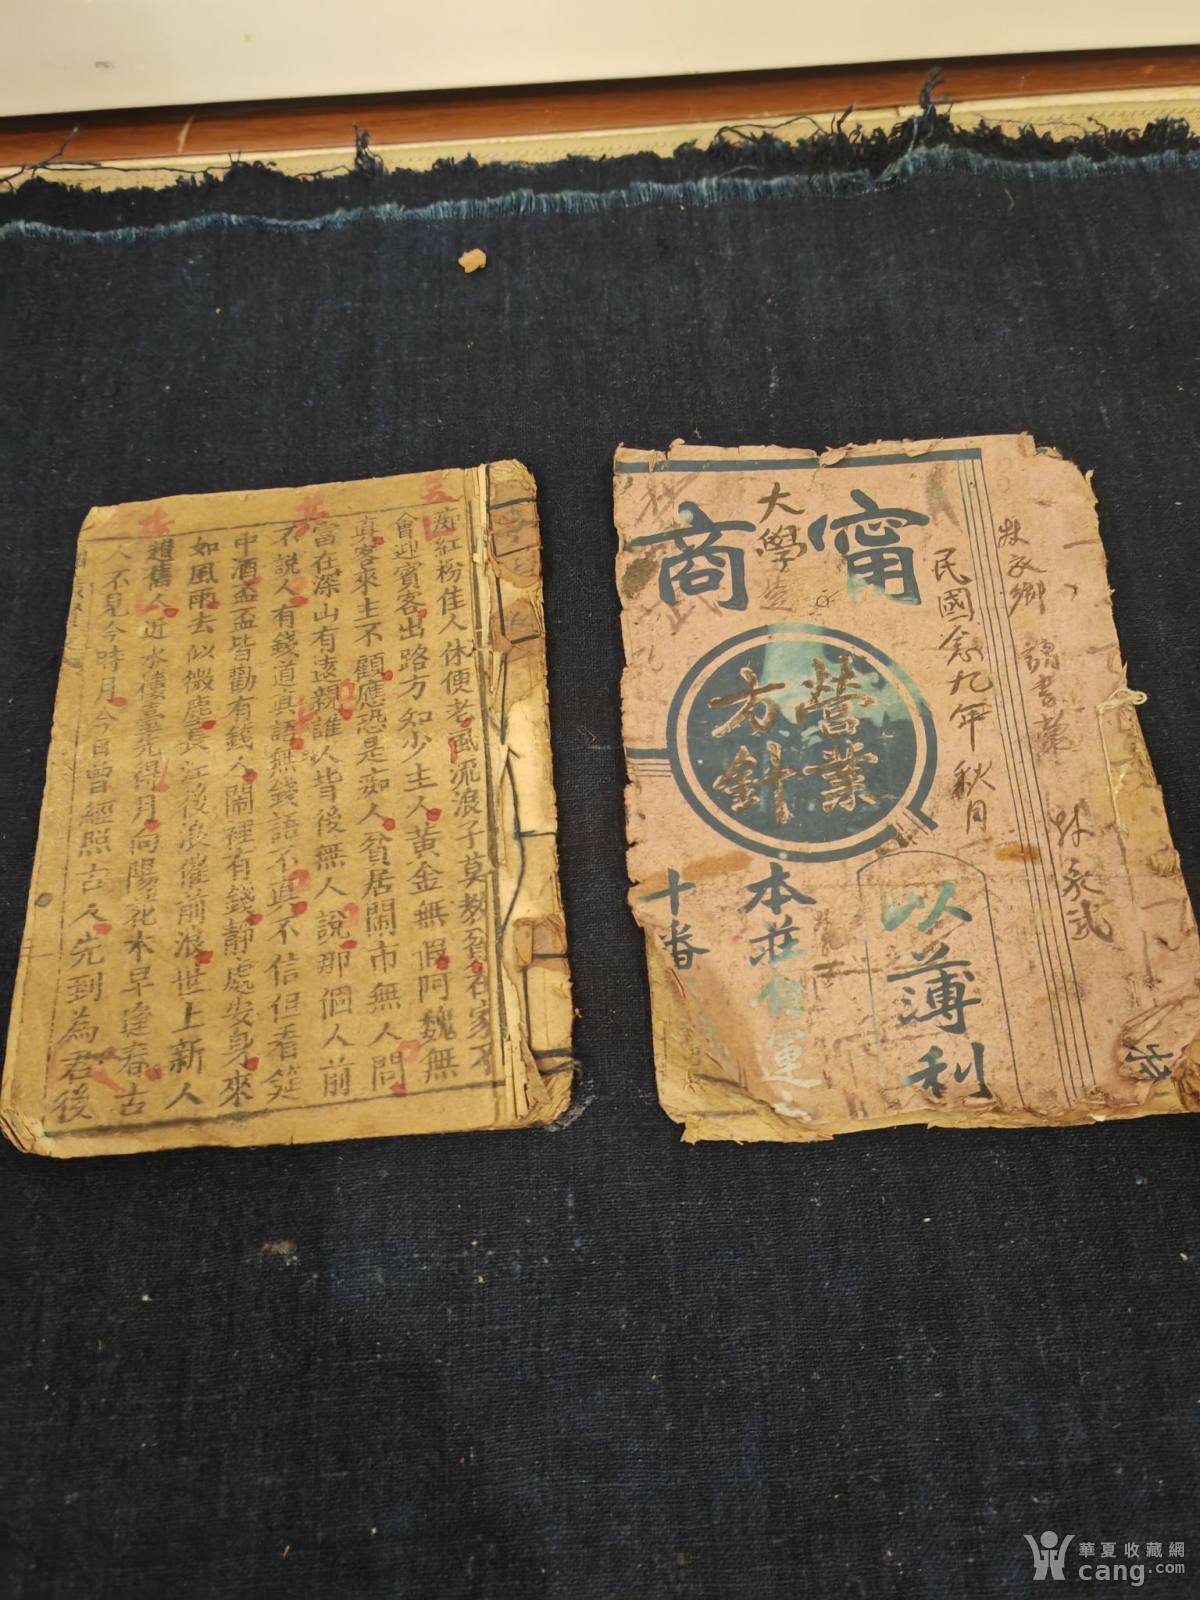 痴紅粉佳人休便老風流浪子莫教貧在家不
會迎賓客出路方知少主人黃金無假阿魏無
真客來主不顧應恐是痴人貧居鬧市無人問
富在深山有遠親誰人背後無人說那個人前
不說人有錢道真語無錢語不真不信但看筵
中酒盃盃皆勸有錢人鬧裡有錢靜處安身來
如風雨去似微塵長江後浪催前浪世上新人
趲舊人近水樓臺先得月向陽花木早逢春古
人不見今時月今日曾經照古人先到為君後
讀書
林永
民國念九年秋月
甯商
大學
營業
方針
以薄利
本莊
運
十
華夏收藏網
cang.com